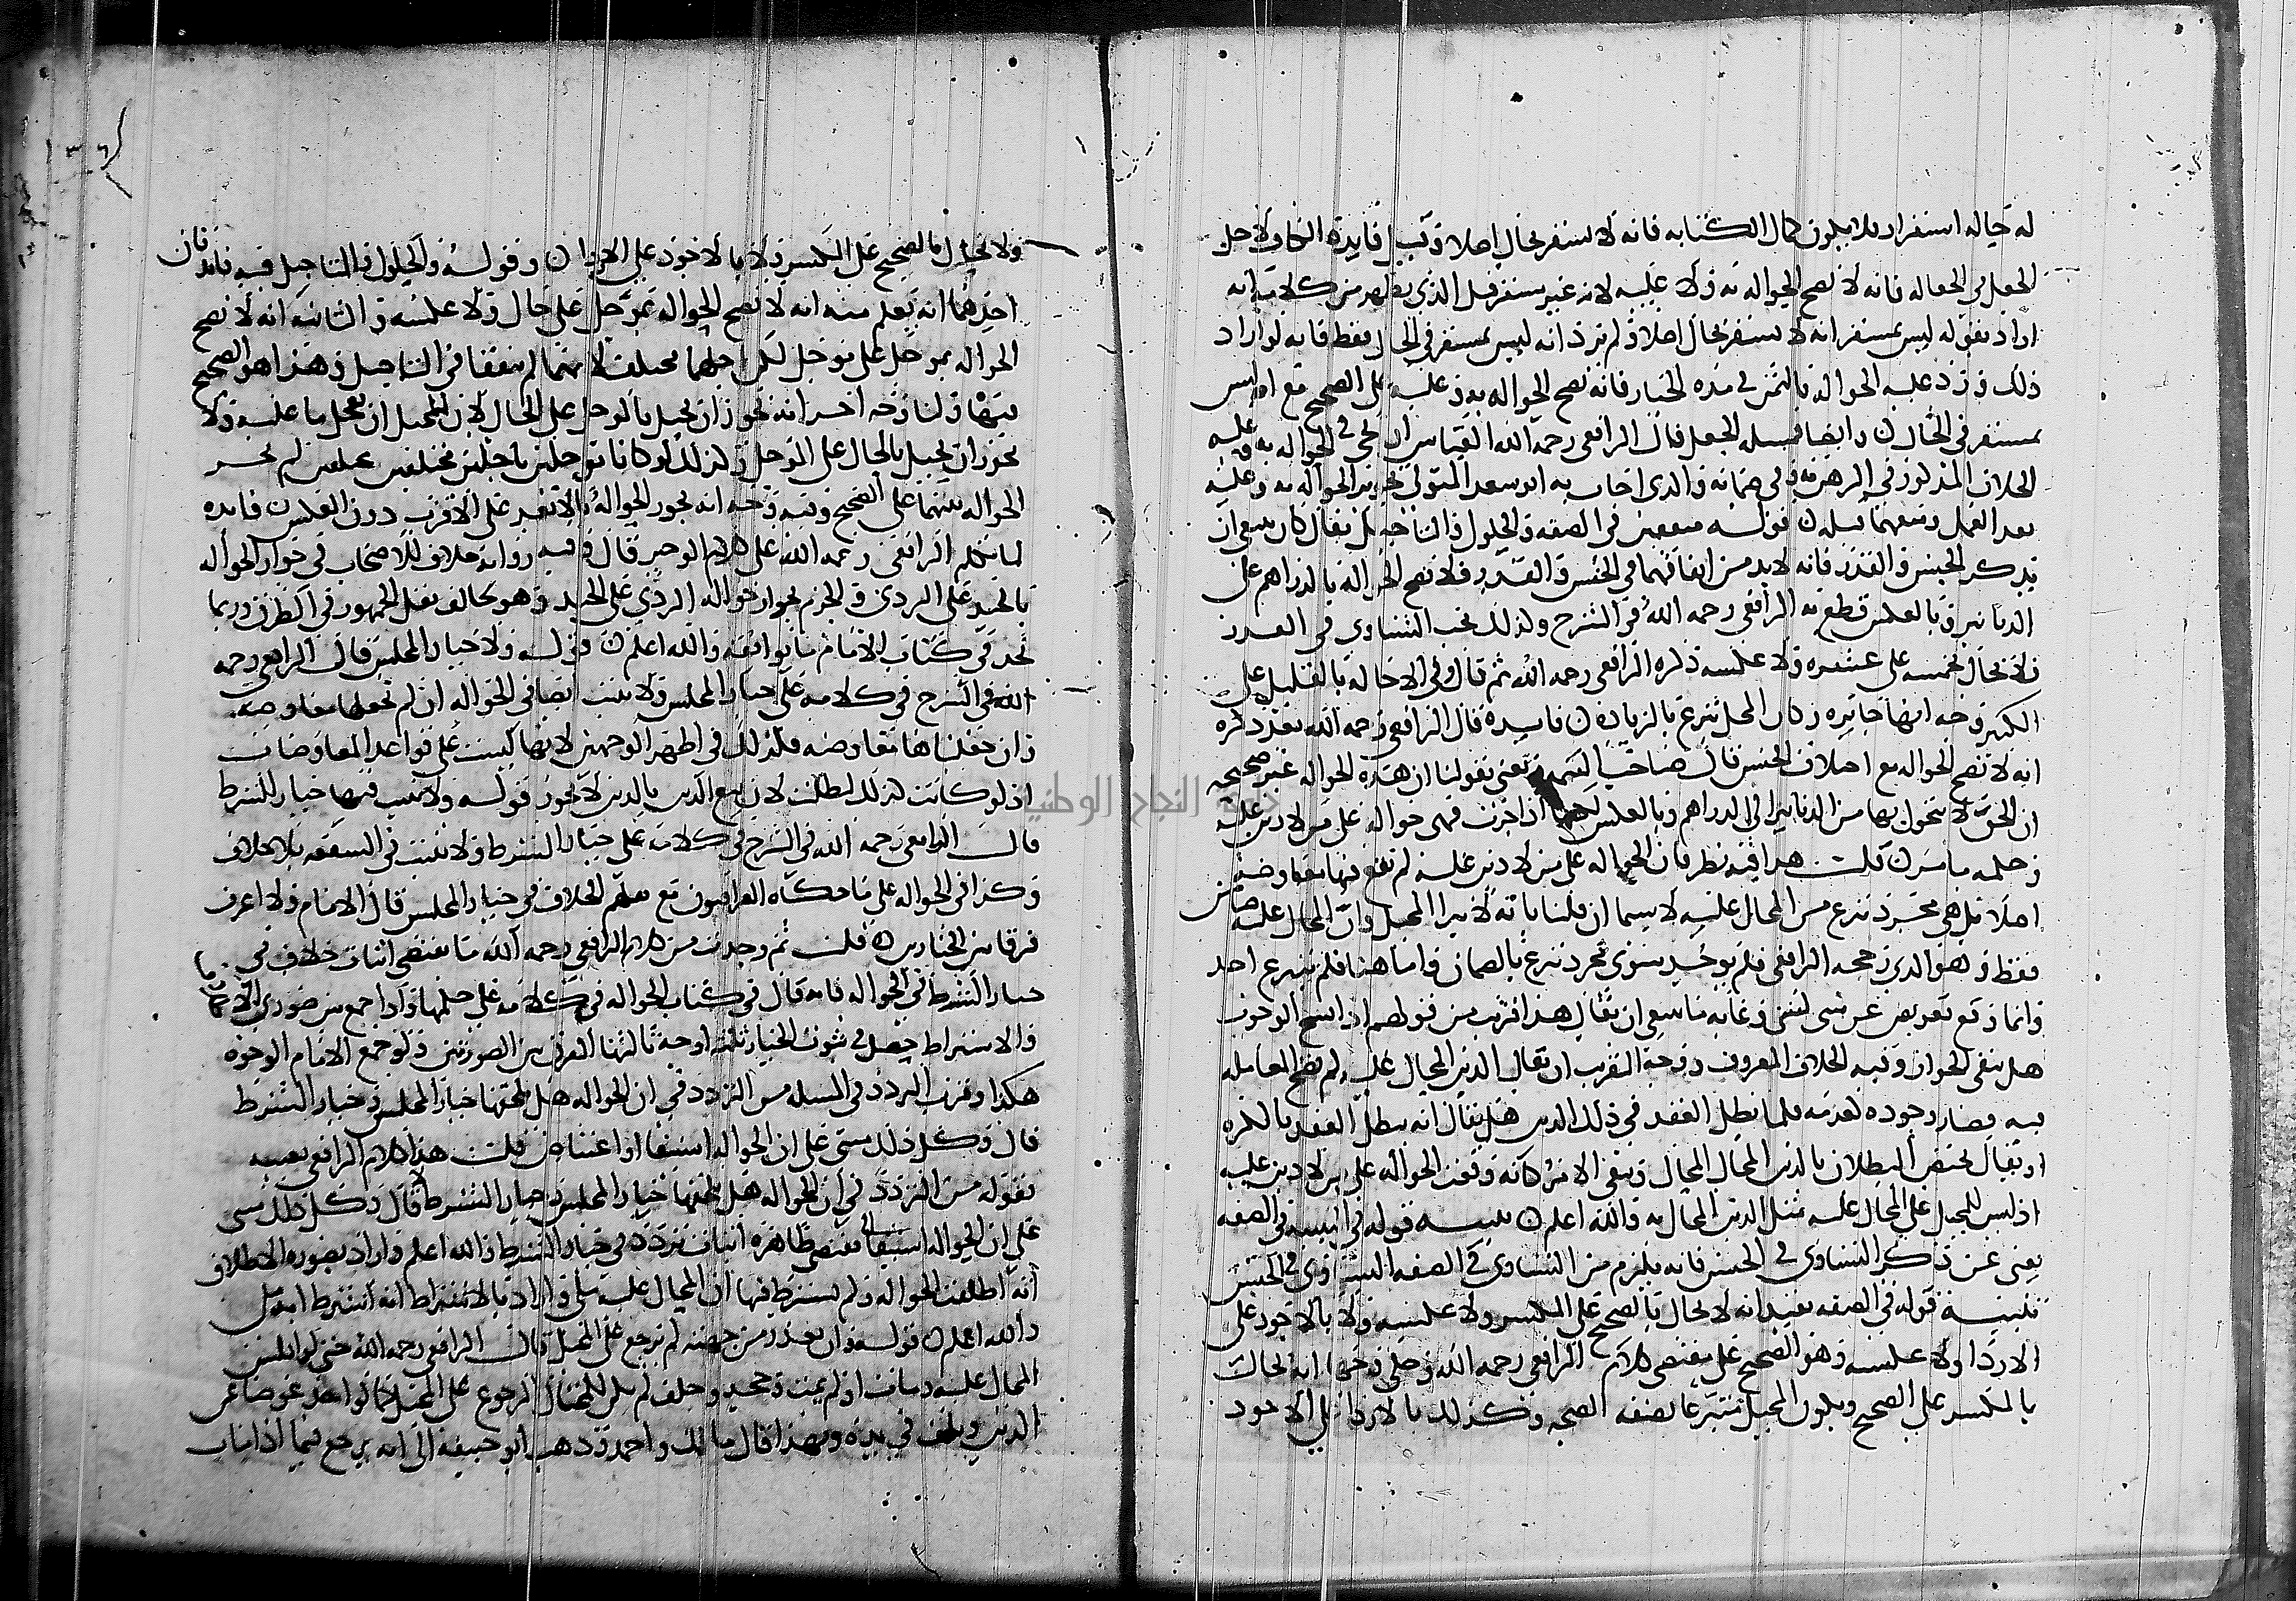 له حاله استقرار فلا يكون كمال الكتابه فانه لا يستقر بحال اصلا وقبيل فايده
الجعل في الجعاله فانه لا تصح الحواله به ولا عليه لانه غير مستقر قيل الذي يظهر من كلامه انه
اراد بقوله ليس بمستقر انه لا يستقر بحال اصلا ولم يرد انه ليس بمستقر في الحال فقط فانه لو اراد
ذلك ورد عليه الحواله بالثمن في مده الخيار فانه تصح الحواله به وعليه على الصحيح مع انه ليس
بمستقر في الحال وايضا فمسله الجعل قال الرافعي رحمه الله القياس ان يجي في الحواله به وعليه
الخلاف المذكور في الرهن به وفي ضمانه والذي اجاب به ابو سعد المتولي تجويز الحواله به وعليه
بعد العمل ومنعهما قبله قوله متفقين في الصفه والحلول والتاجيل يقال كان ينبغي ان
يذكر الجنس والقدر فانه لا بد من اتفاقهما في الجنس والقدر فلا تصح الحواله بالدراهم على
الدنانير وبالعكس قطع به الرافعي رحمه الله في الشرح ولذلك يجب التساوي في القدر
فلا يحال بخمسه على عشره ولا عكسه ذكره الرافعي رحمه الله ثم قال وفي الاحاله بالقليل على
الكثير وجه انها جايزه وكان المحيل تبرع بالزياده فايده قال الرافعي رحمه الله بعد ذكره
انه لا تصح الحواله مع اختلاف الجنس قال صاحب التتمه ونعني بقولنا ان هذه الحواله غير صحيحه
ان الحق لا يتحول بها من الدنانير الى الدراهم وبالعكس لكنها اذا جرت فهي حواله على من لا دين عليه
وحكمه ما مر قلت هذا فيه نظر فان الحواله على من لا دين عليه لم تقع فيها معاوضه
اصلا بل هي مجرد تبرع من المحال عليه لا سيما ان قلنا بانه لا يبرا المحيل وان المحال عليه ضامن
فقط وهو الذي رجحه الرافعي فلم يوجد سوى مجرد تبرع بالضمان واما هنا فلم يتبرع احد
وانما وقع تعويض عن شي لشي وغايه ما ينبغي ان يقال هذا اقرب من قولهم اذا نسخ الوجوب
هل يبقى الجواز وفيه الخلاف المعروف ووجه التقريب ان يقال الدين المحال عليه لم تصح المعامله
فيه فصار وجوده كعدمه فلما بطل العقد في ذلك الدين هل يقال انه بطل العقد بالكليه
او يقال يختص البطلان بالدين المحال المحال ويبقى الامر كانه وقعت الحواله على من لا دين عليه
اذ ليس للمحيل على المحال عليه مثل الدين المحال به والله اعلم تنبيه قوله في التنبيه في الصفه
يغني عن ذكر التساوي في الجنس فانه يلزم من التساوي في الصفه التساوي في الجنس
تنبيه قوله في الصفه يفيد انه لا يحال بالصحيح على المكسر ولا عكسه ولا بالاجود على
الاردا ولا عكسه وهو الصحيح على مقتضى كلام الرافعي رحمه الله وحكى وجها انه يحال
بالمكسر على الصحيح ويكون المحيل متبرعا بصفه الصحه وكذلك بالاردا على الاجود
ولا يحال بالصحيح على المكسر ولا بالاجود على الاردا وقوله والحلول والتاجيل فيه فايدتان
احدهما انه يعلم منه انه لا تصح الحواله بموجل على حال ولا عكسه والثانيه انه لا تصح
الحواله بموجل على موجل لكن اجلهما مختلف لانهما لم يتفقا في التاجيل وهذا هو الصحيح
فيهما ولنا وجه اخر انه يجوز ان يحيل بالموجل على الحال لان للمحيل ان يعجل ما عليه ولا
يجوز ان يحيل بالحال على الموجل وكذلك لو كانا موجلين باجلين مختلفين لم تجز
الحواله بينهما على الصحيح وفيه وجه انه يجوز الحواله بالابعد على الاقرب دون العكس فايده
لما تكلم الرافعي رحمه الله على كلام الوجيز قال وفيه روايه خلاف للاصحاب في جواز الحواله
بالجيد على الردي والجزم بجواز حواله الردي على الجيد وهو يخالف نقل الجمهور في الطرق وربما
تجد في كتاب الامام ما يوافقه والله اعلم قوله ولا خيار المجلس قال الرافعي رحمه
الله في الشرح في كلامه على خيار المجلس ولا يثبت ايضا في الحواله ان لم نجعلها معاوضه
وان جعلناها معاوضه فكذلك في اظهر الوجهين لانها ليست على قواعد المعاوضات
اذ لو كانت كذلك لبطلت لان بيع الدين بالدين لا يجوز قوله ولا يثبت فيها خيار الشرط
قال الرافعي رحمه الله في الشرح في كلامه على خيار الشرط ولا يثبت في الشفعه بلا خلاف
وكذا في الحواله على ما حكاه العراقيون مع نقلهم الخلاف في خيار المجلس قال الامام ولا اعرف
فرقا بين الخيارين قلت ثم وجدت من كلام الرافعي رحمه الله ما يقتضي اثبات خلاف في
خيار الشرط في الحواله فانه قال في كتاب الحواله في كلامه على حكمها واذا جمع بين صورتي
والاشتراط حصل في ثبوت الخيار ثلثه اوجه ثالثها الفرق بين الصورتين ولو جمع الامام الوجوه
هكذا وقرب التردد في المسله من التردد في ان الحواله هل يلحقها خيار المجلس وخيار الشرط
قال وكل ذلك مبني على ان الحواله استيفا او اعتياض قلت هذا كلام الرافعي بعينه
بقوله من التردد في ان الحواله هل يلحقها خيار المجلس وخيار الشرط قال وكل ذلك مبني
على ان الحواله استيفا يقتضي ظاهره اثبات تردد في خيار الشرط والله اعلم واراد بصوره الاطلاق
انه اطلقت الحواله ولم يشترط فيها ان المحال عليه ملي واراد بالاشتراط انه اشترط انه ملي
والله اعلم قوله وان تعذر من جهته لم يرجع على المحيل قال الرافعي رحمه الله حتى لو افلس
المحال عليه ومات او لم يمت وجحد وحلف لم يكن للمحتال الرجوع على المحيل كما لو اخذ عوضا عن
الدين وتلف في يده وبهذا قال مالك واحمد وذهب ابو حنيفه الى انه يرجع فيما اذا مات